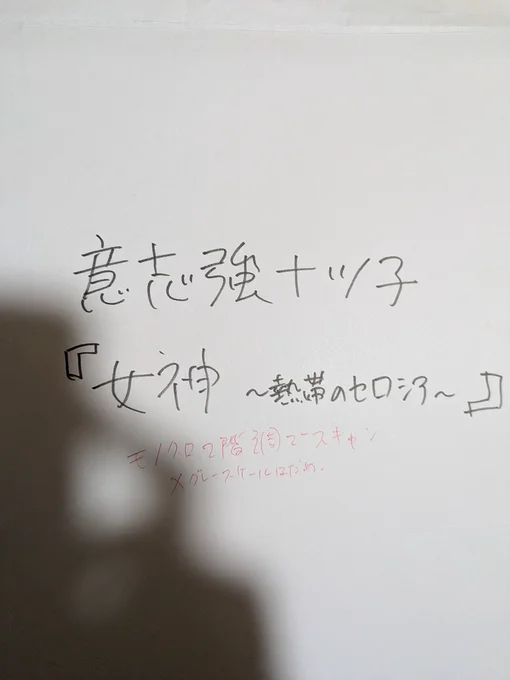 意志強ナツ子
『女神 〜熱帯のセロシア〜』
モノクロ2階調でスキャン
×グレースケールはだめ.